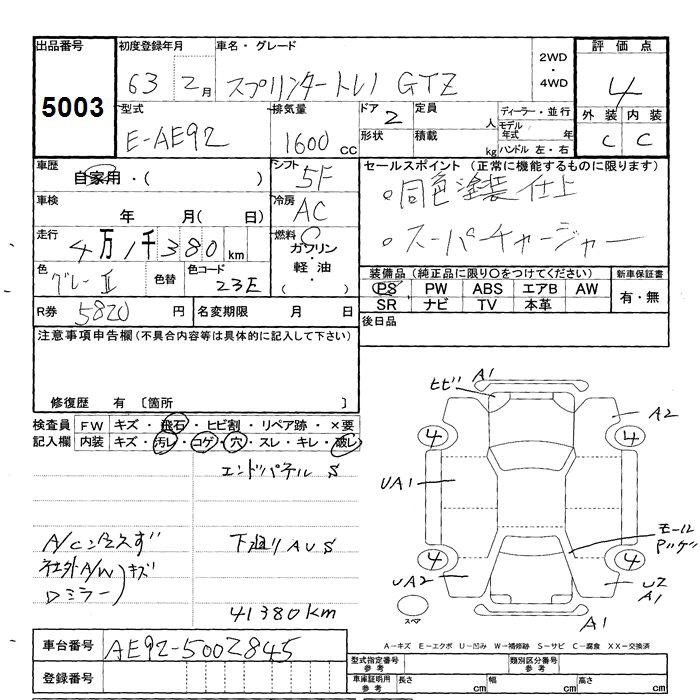 出品番号 5003
初度登録年月 63 2月
車名・グレード スプリンタートレノ GTZ
2WD・4WD
評価点 4
外装 C 内装 C
型式 E-AE92
排気量 1600 cc
ドア 2
形状
定員 人
積載 kg
ディーラー・並行
モデル年式 年
ハンドル 左・右
車歴 自家用・( )
シフト 5F
セールスポイント (正常に機能するものに限ります)
。同色塗装仕上
。スーパーチャージャー
車検 年 月( 日)
冷房 AC
走行 4万1千380km
燃料 ガソリン・軽油・( )
色 グレーII
色替
色コード 23E
装備品 (純正品に限り○をつけてください)
PS PW ABS エアB AW
SR ナビ TV 本革
新車保証書 有・無
R券 5820 円
名変期限 月 日
後日品
注意事項申告欄(不具合内容等は具体的に記入して下さい)
修復歴 有 〔箇所 〕
検査員記入欄
FW キズ・飛石・ヒビ割・リペア跡・×要
内装 キズ・汚レ・コゲ・穴・スレ・キレ・破レ
エンドパネル S
下廻りAUS
社外A/W
Dミラー)キズ
41380km
ヒビ A1
A2
4 4
UA1
モール
4 4
UA2
UZ
A1
スペア
A1
A-キズ E-エクボ U-凹み W-補修跡 S-サビ C-腐食 XX-交換済
車台番号 AE92-5002845
登録番号
型式指定番号 参考
類別区分番号 参考
車庫証明用 参考 長さ cm 幅 cm 高さ cm